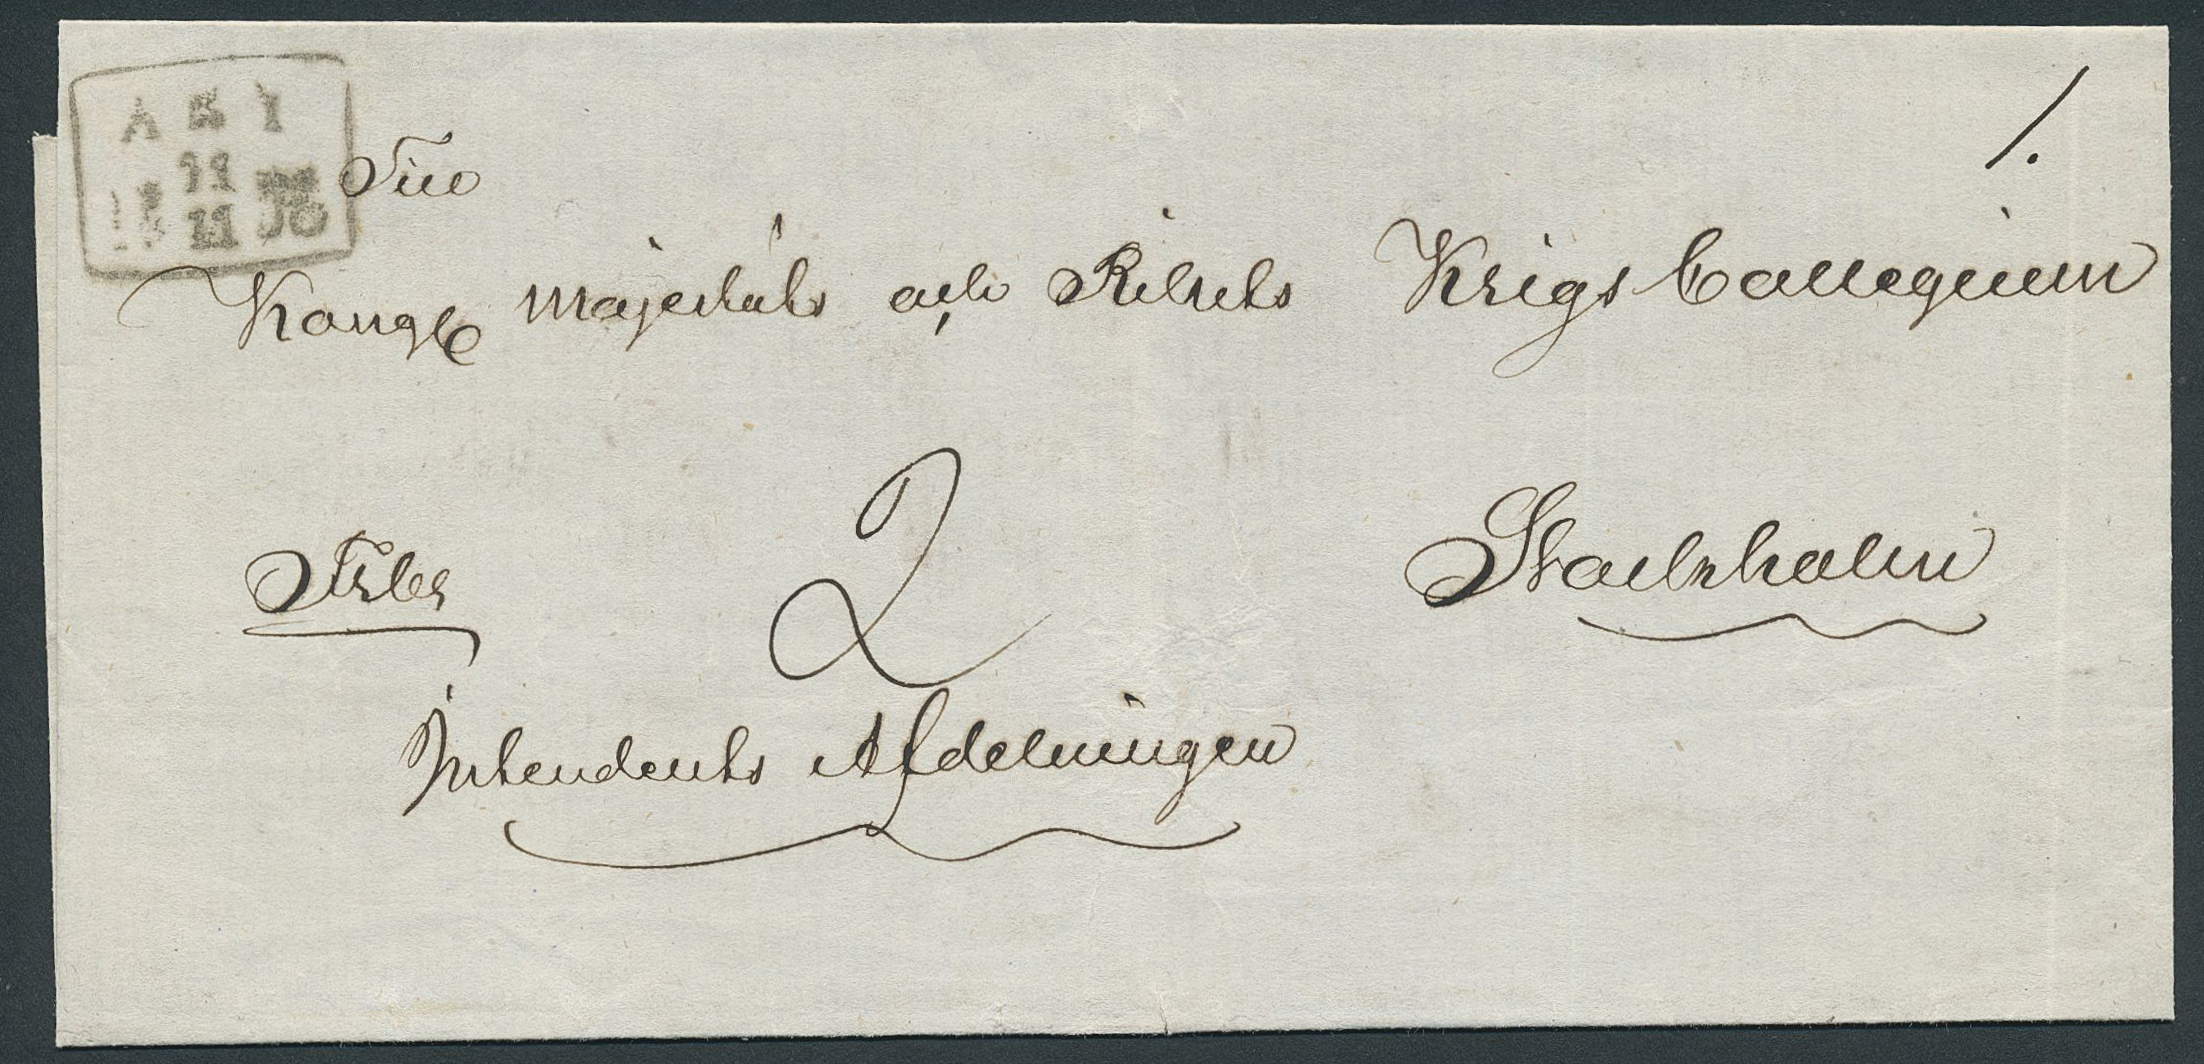 ÅBY
11
11
1.
Till
Kongl Majestäts och Rikets Krigs Collegium
2
Stockholm
Frbr
Intendents Afdelningen